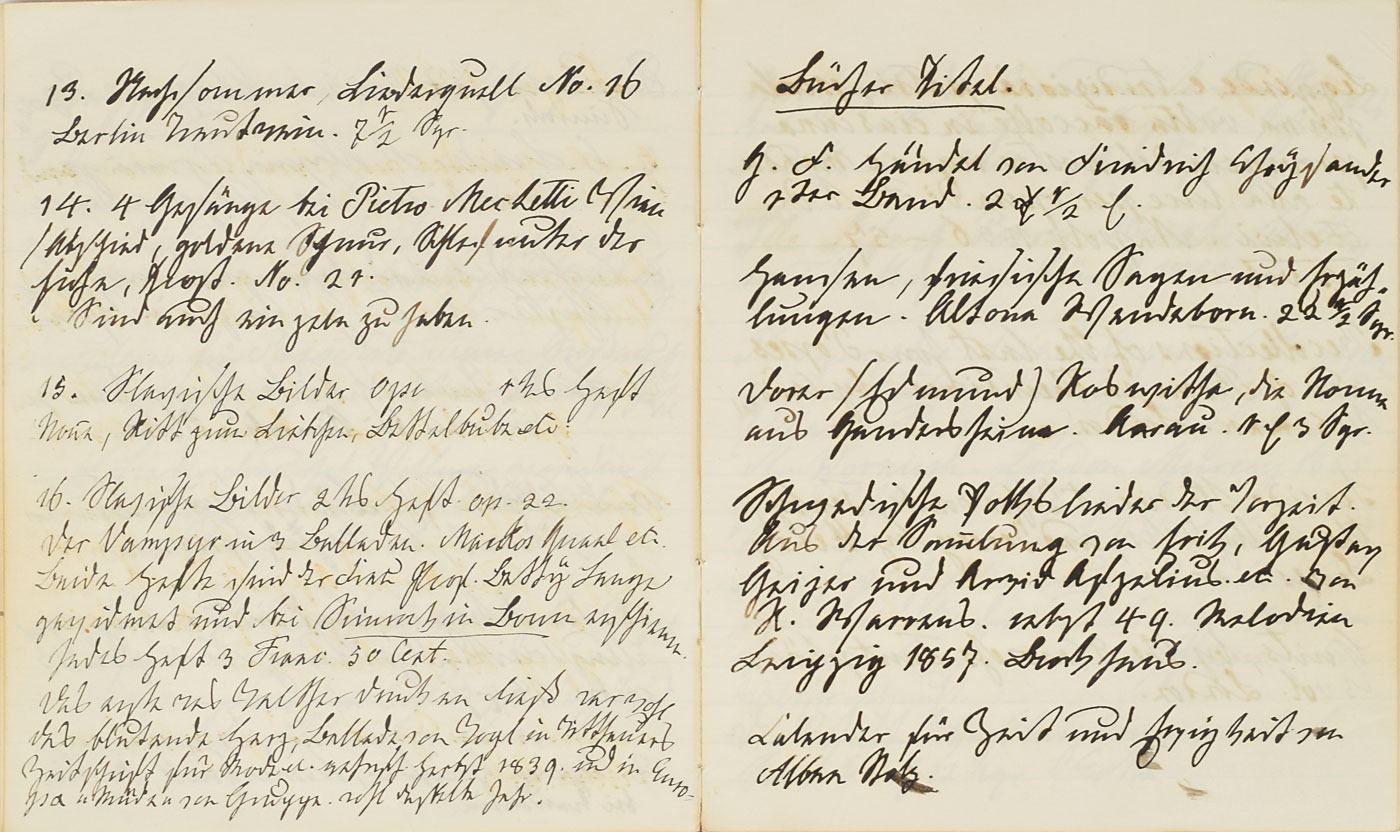 13. Nachsommer, Liederquell No. 16
Berlin Trautwein. 7 1/2 Sgr.
14. 4 Gesänge bei Pietro Mechetti Wien
(Abschied, goldene Schnur, Schlaf unter der
No. 21.
Sind auch einzeln zu haben.
15. Slavische Bilder opc 1tes Heft
Noñe, Ritt zum Liebchen, Bettelbube etc.
16. Slavische Bilder 2tes Heft op. 22.
Der Vampyr in 3 Balladen. etc.
Beide Hefte sind der Betty
gewidmet und bei Simrock in Bonn erschienen.
Jedes Heft 3 Franc. 50 Cent.
Das erste was drucken ließ war wohl
das blutende Herz, Ballade von Vogl in Witthauers
Zeitschrift für Mode etc. Herbst 1839. und in
von wohl dasselbe Jahr.
Bücher Titel.
G. F. Händel von Friedrich Chrysander
1ter Band. 2 1/2
Hansen, friesische Sagen und Erzäh-
lungen. Altona Wendeborn. 22 1/2 Sgr.
Dorer (Edmund) Roswitha, die Nonne
aus Gandersheim. Aarau. 3 Sgr.
Schwedische Volkslieder der Vorzeit.
Aus der Sam̄lung von Erik, Gustav
Geijer und Arvid Afzelius. etc. von
R. Warrens. nebst 49. Melodien
Leipzig 1857. Brockhaus.
Calender für Zeit und Ewigkeit von
Alban Stolz.